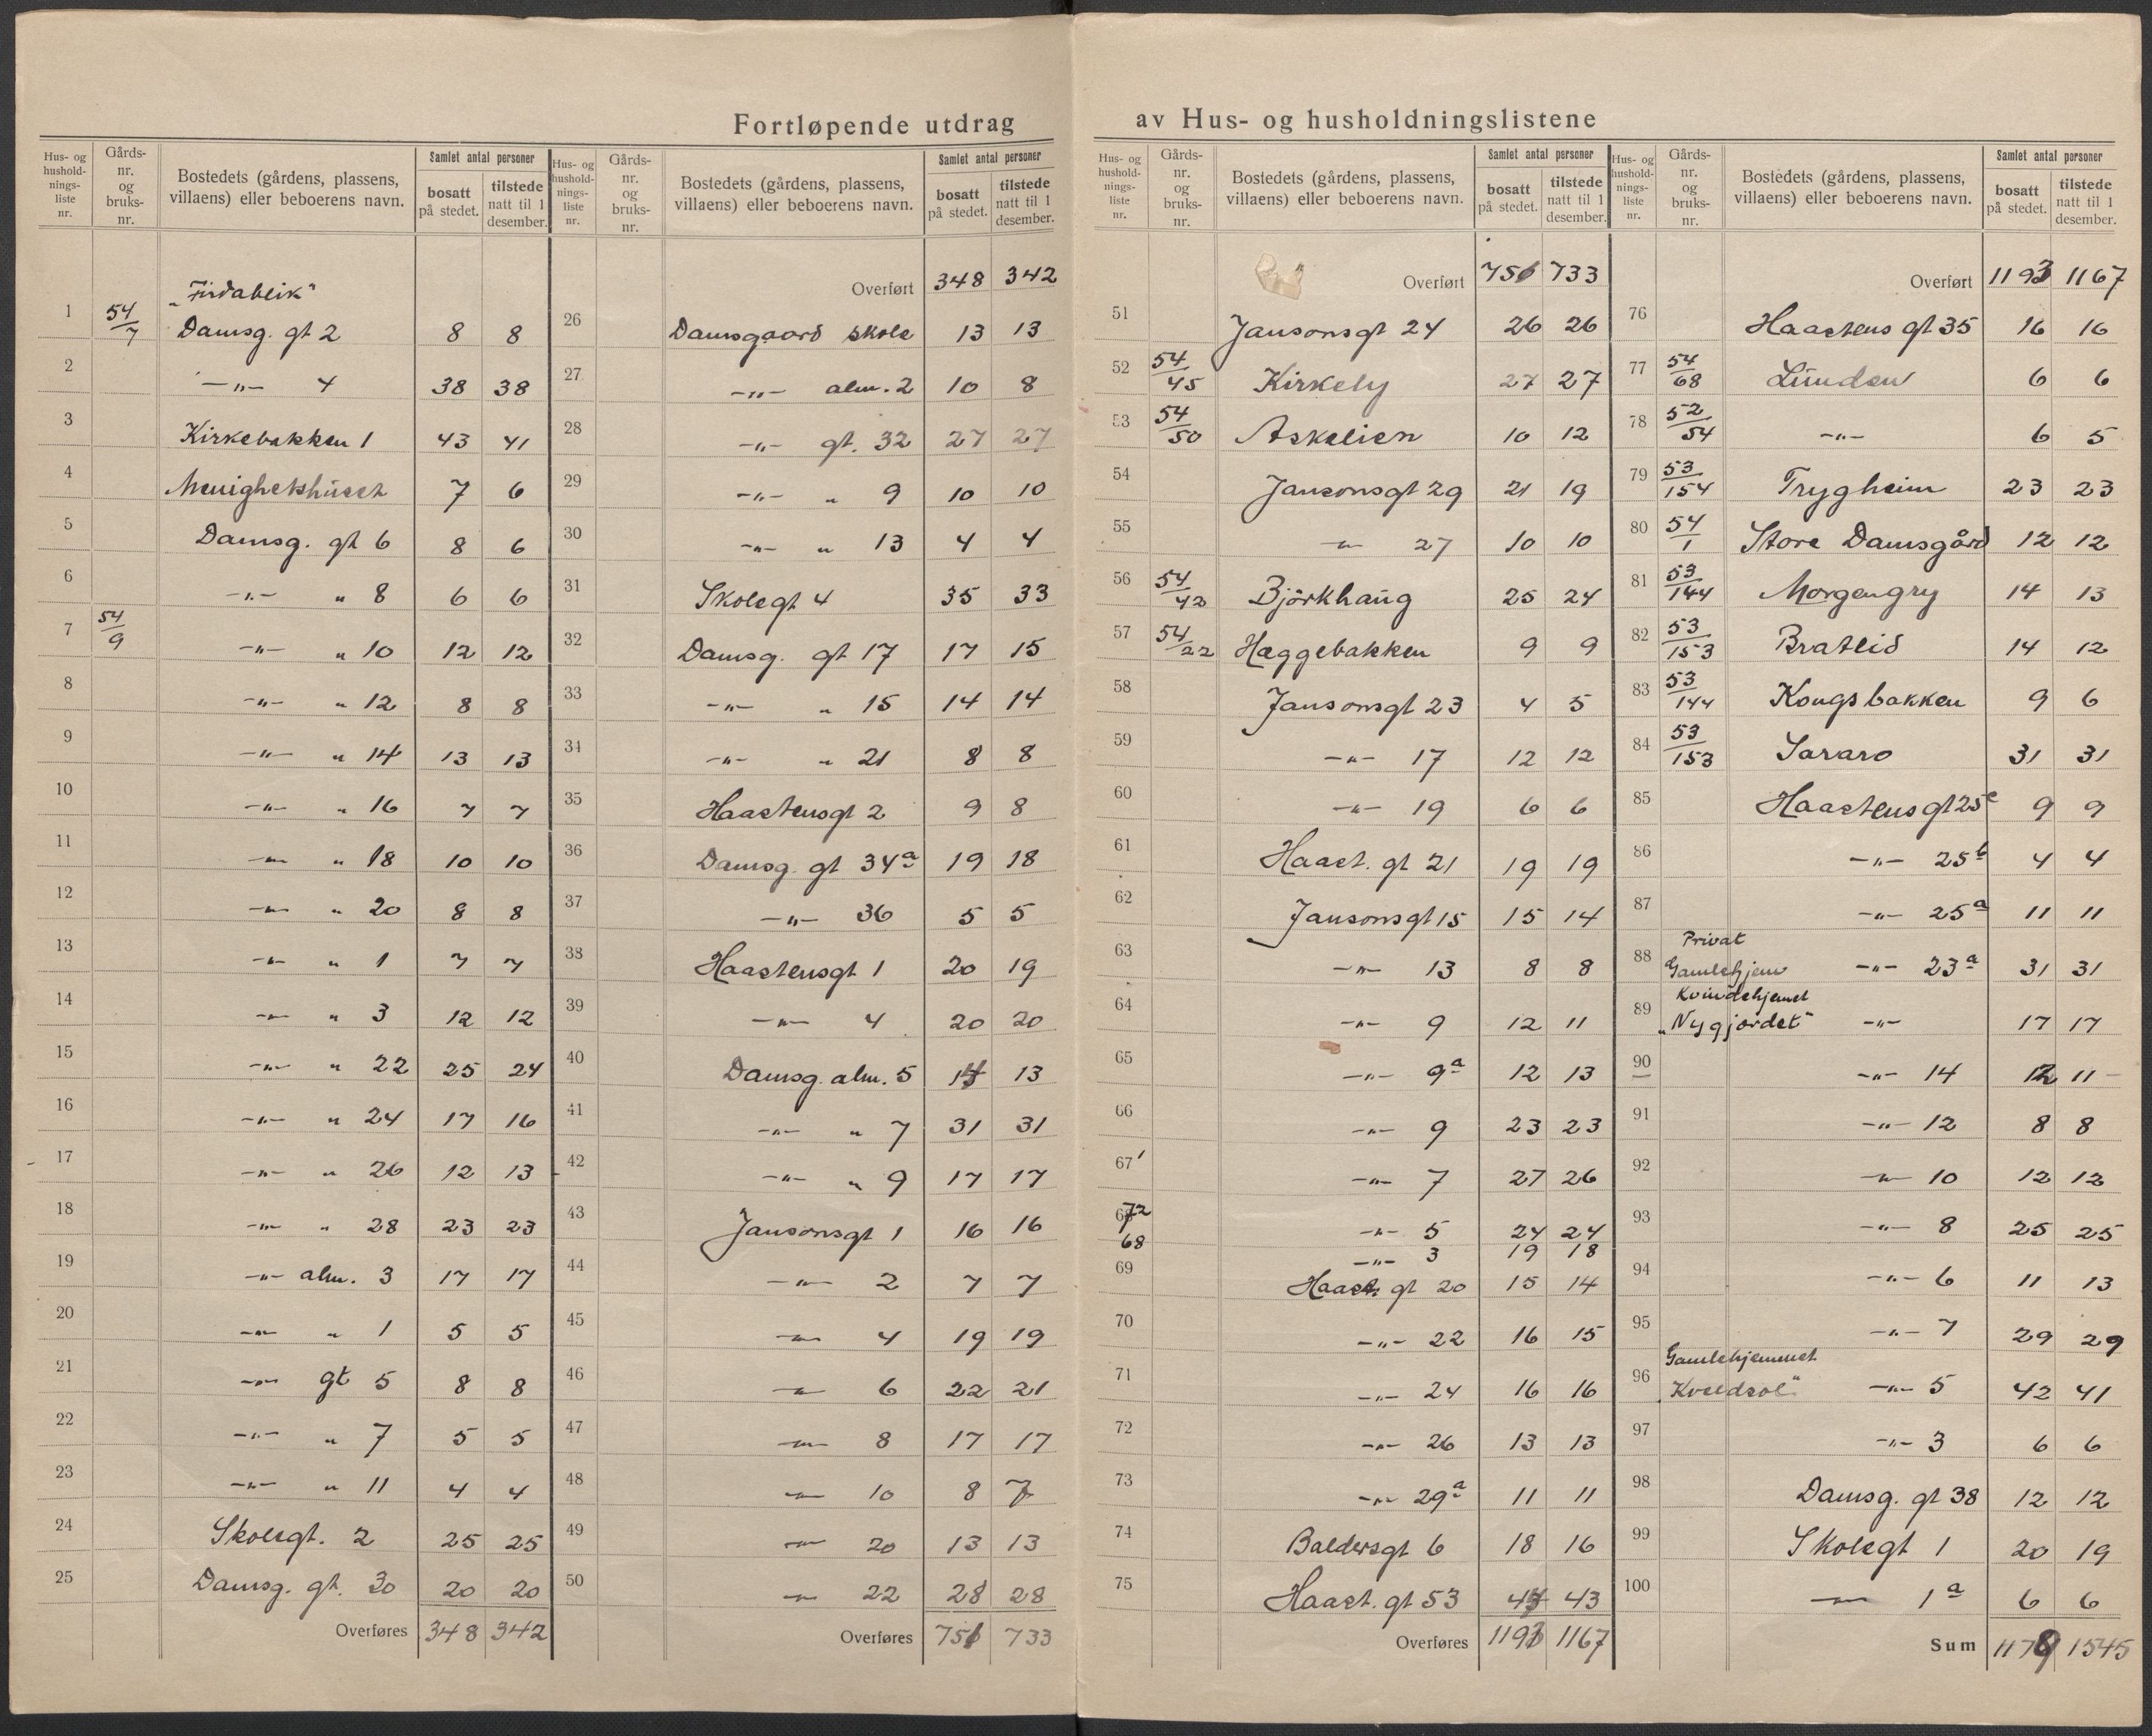 Fortløpende utdrag av Hus- og husholdningslistene
Hus- og husholdnings-liste nr. | Gårds-nr. og bruks-nr. | Bostedets (gårdens, plassens, villaens) eller beboerens navn. | Samlet antal personer | bosatt på stedet. | tilstede natt til 1 desember.
"Firdablik"
1 54/7 Damsg. gt 2 8 8
2 -"- 4 38 38
3 Kirkebakken 1 43 41
4 Menighetshuset 7 6
5 Damsg. gt 6 8 6
6 -"- " 8 6 6
7 54/9 -"- " 10 12 12
8 -"- " 12 8 8
9 -"- " 14 13 13
10 -"- " 16 7 7
11 -"- " 18 10 10
12 -"- " 20 8 8
13 -"- " 1 7 7
14 -"- " 3 12 12
15 -"- " 22 25 24
16 -"- " 24 17 16
17 -"- " 26 12 13
18 -"- " 28 23 23
19 -"- alm. 3 17 17
20 -"- " 1 5 5
21 -"- gt 5 8 8
22 -"- " 7 5 5
23 -"- " 11 4 4
24 Skolegt. 2 25 25
25 Damsg. gt. 30 20 20
Overføres 348 342
Hus- og husholdnings-liste nr. | Gårds-nr. og bruks-nr. | Bostedets (gårdens, plassens, villaens) eller beboerens navn. | Samlet antal personer | bosatt på stedet. | tilstede natt til 1 desember.
Overført 348 342
26 Damsgaard skole 13 13
27 -"- alm. 2 10 8
28 -"- gt. 32 27 27
29 -"- " 9 10 10
30 -"- " 13 4 4
31 Skolegt 4 35 33
32 Damsg. gt 17 17 15
33 -"- " 15 14 14
34 -"- " 21 8 8
35 Haastensgt 2 9 8
36 Damsg. gt 34a 19 18
37 -"- 36 5 5
38 Haastensgt 1 20 19
39 -"- 4 20 20
40 Damsg. alm. 5 13
41 -"- " 7 31 31
42 -"- " 9 17 17
43 Jansonsgt 1 16 16
44 -"- 2 7 7
45 -"- 4 19 19
46 -"- 6 22 21
47 -"- 8 17 17
48 -"- 10 8 7
49 -"- 20 13 13
50 -"- 22 28 28
Overføres 751 733
Hus- og husholdnings-liste nr. | Gårds-nr. og bruks-nr. | Bostedets (gårdens, plassens, villaens) eller beboerens navn. | Samlet antal personer | bosatt på stedet. | tilstede natt til 1 desember.
Overført 751 733
51 Jansonsgt 24 26 26
52 54/45 Kirkely 27 27
53 54/50 Askelien 10 12
54 Jansonsgt 29 21 19
55 -"- 27 10 10
56 54/42 Björkhaug 25 24
57 54/22 Hæggebakken 9 9
58 Jansonsgt 23 4 5
59 -"- 17 12 12
60 -"- 19 6 6
61 Haast. gt 21 19 19
62 Jansonsgt 15 15 14
63 -"- 13 8 8
64 -"- 9 12 11
65 -"- 9a 12 13
66 -"- 9 23 23
67 -"- 7 27 26
72 -"- 5 24 24
68 -"- 3 19 18
69 Haast. gt 20 15 14
70 -"- 22 16 15
71 -"- 24 16 16
72 -"- 26 13 13
73 -"- 29a 11 11
74 Baldersgt 6 18 16
75 Haast. gt 53 43
Overføres 1193 1167
Hus- og husholdnings-liste nr. | Gårds-nr. og bruks-nr. | Bostedets (gårdens, plassens, villaens) eller beboerens navn. | Samlet antal personer | bosatt på stedet. | tilstede natt til 1 desember.
Overført 1193 1167
76 Haastens gt 35 16 16
77 54/68 Lunden 6 6
78 52/54 -"- 6 5
79 53/154 Trygheim 23 23
80 54/1 Store Damsgård 12 12
81 53/144 Morgengry 14 13
82 53/153 Bratlid 14 12
83 53/144 Kongsbakken 9 6
84 53/153 Sararo 31 31
85 Haastens gt 25c 9 9
86 -"- 25b 4 4
87 -"- 25a 11 11
88 Privat Gamlehjem -"- 23a 31 31
89 Kvindehjemet "Nygjordet" -"- 17 17
90 -"- 14 12 11
91 -"- 12 8 8
92 -"- 10 12 12
93 -"- 8 25 25
94 -"- 6 11 13
95 -"- 7 29 29
96 Gamlehjemmet "Kveldsol" -"- 5 42 41
97 -"- 3 6 6
98 Damsg. gt 38 12 12
99 Skolegt 1 20 19
100 -"- 1a 6 6
Sum 1545